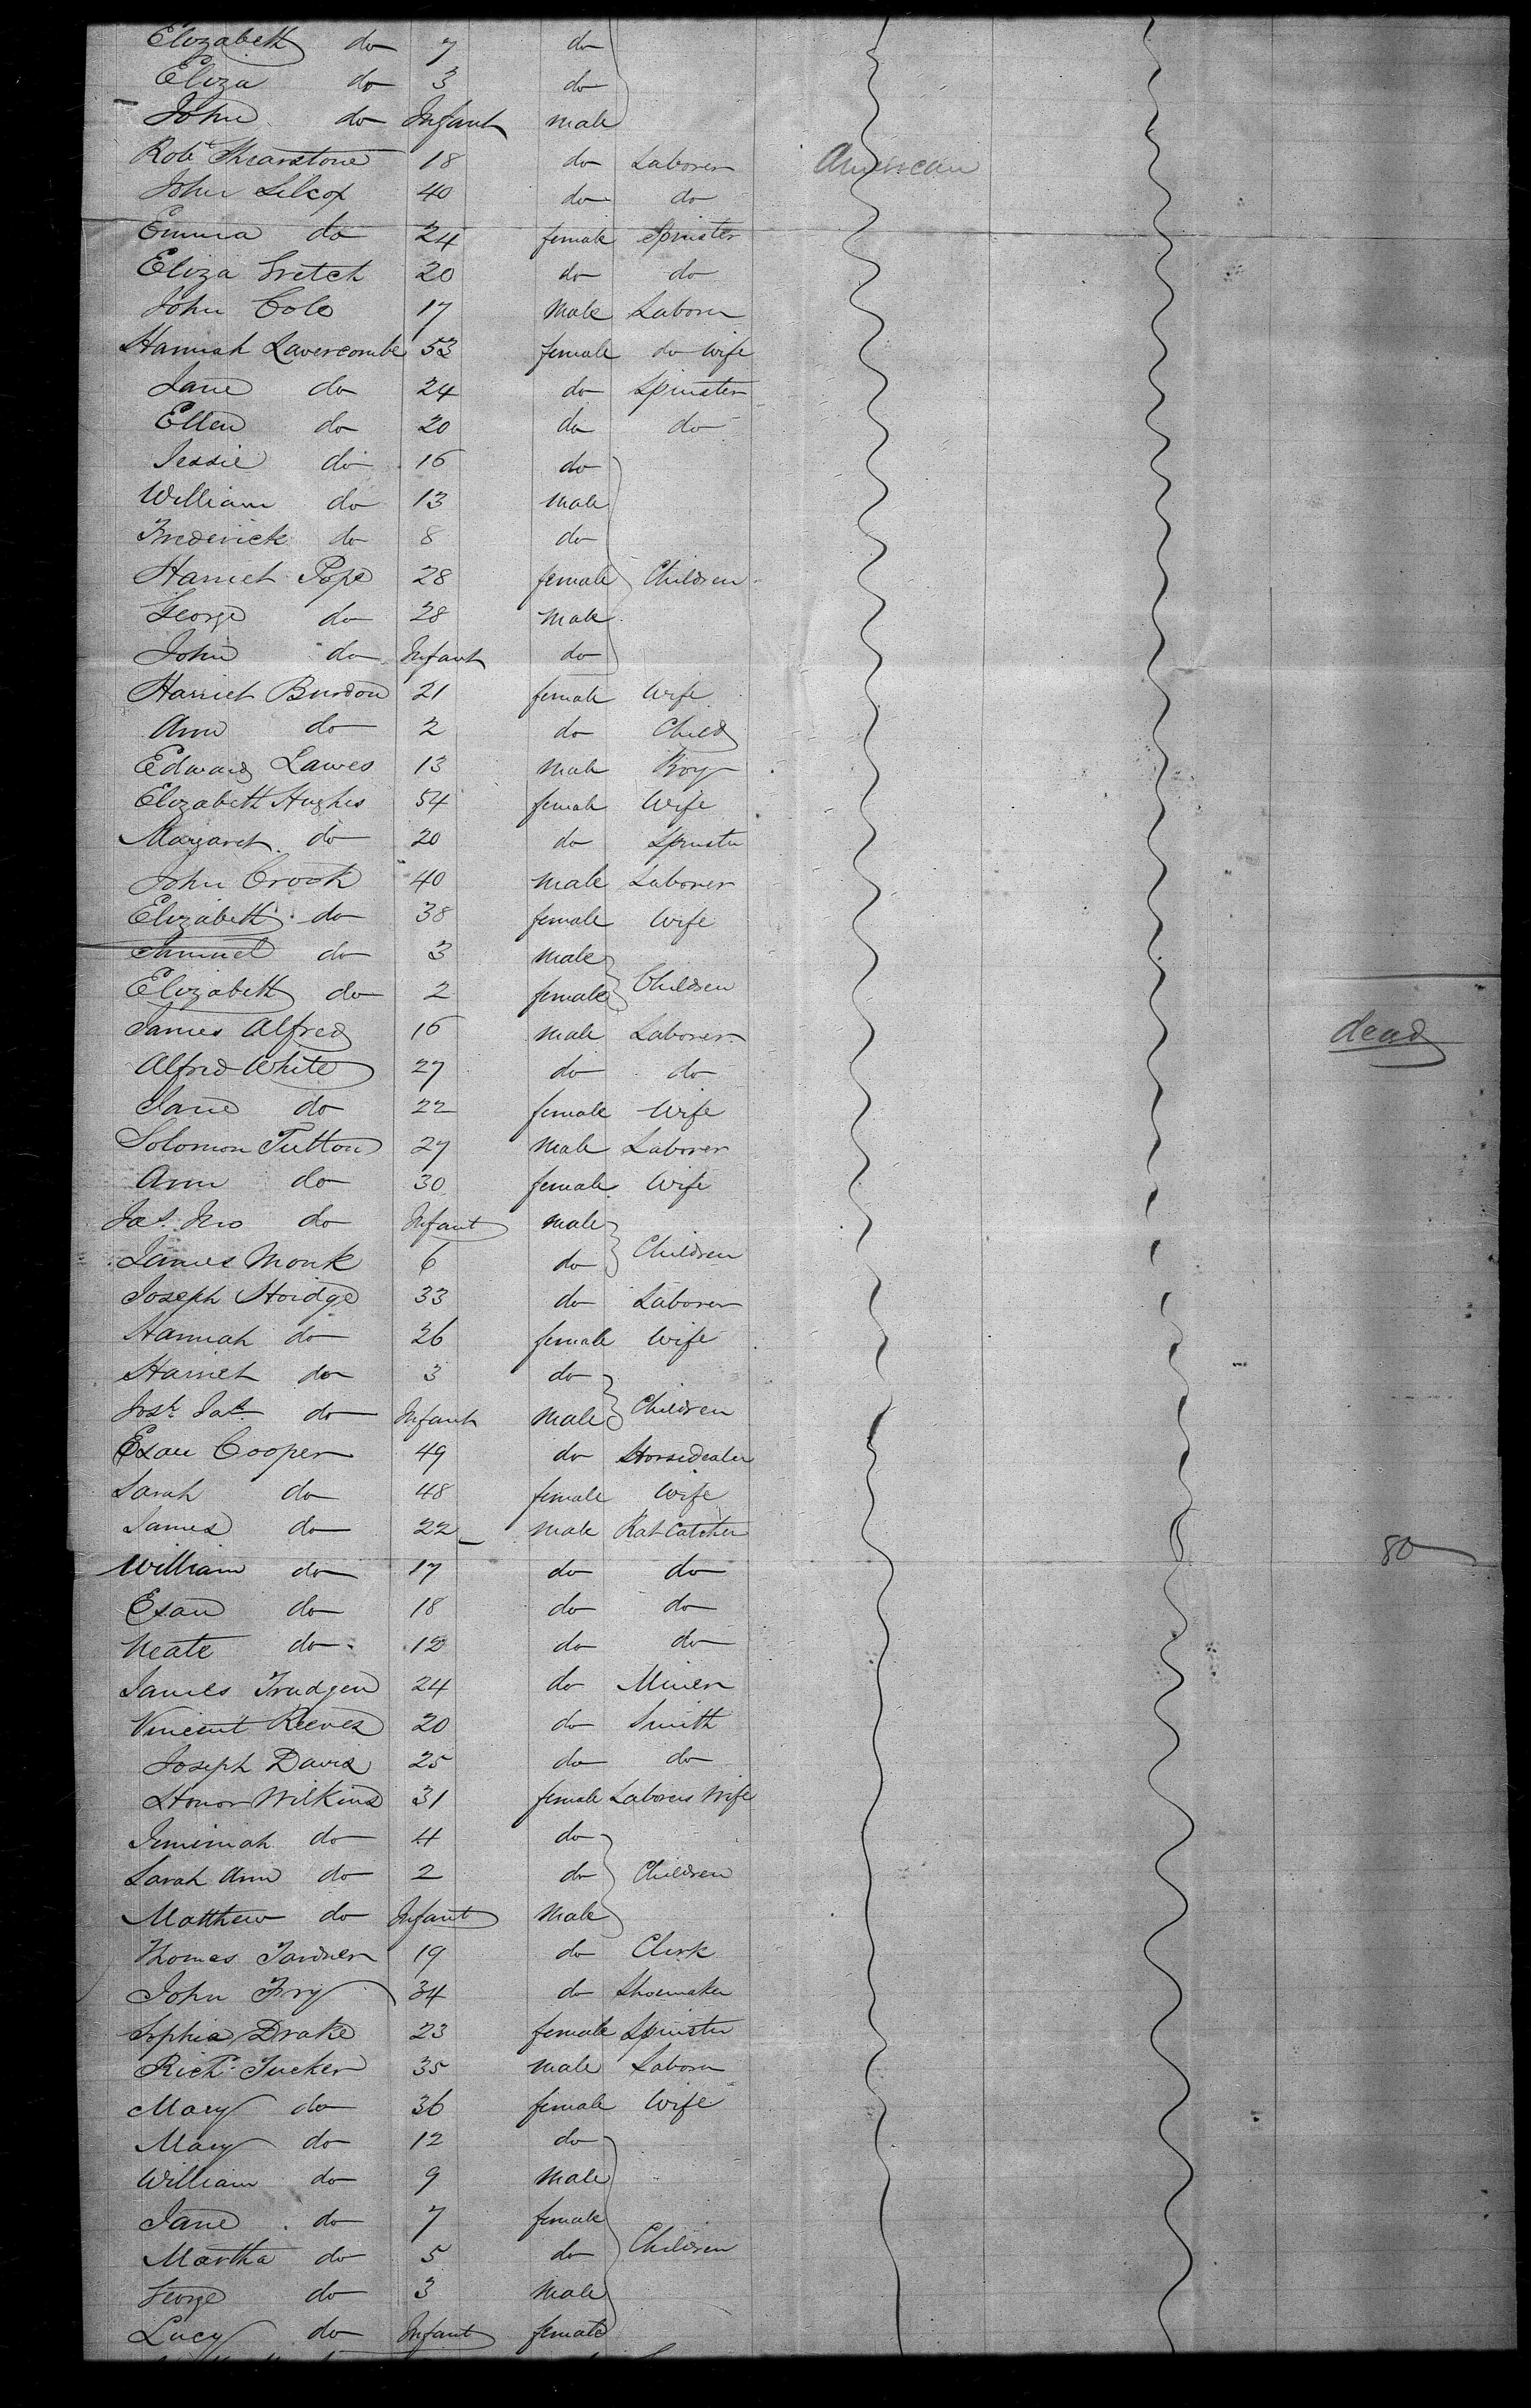 Elizabeth do 7 do
Eliza do 3 do
John do Infant male
Robt 18 do Laborer American
John Silcox 40 do do
Emma do 24 female Spinster
Eliza 20 do do
John Cole 17 male Laborer
Hannah Lavercombe 53 female do wife
Jane do 24 do Spinster
Ellen do 20 do do
Jessie do 16 do
William do 13 male
Frederick do 8 do
Harriet Pope 28 female Children
George do 28 male
John do Infant do
Harriet Burdon 21 female Wife
Ann do 2 do Child
Edward Lawes 13 male Boy
Elizabeth Hughes 54 female Wife
Margaret do 20 do Spinster
John Crook 40 male Laborer
Elizabeth do 38 female Wife
Samuel do 3 male
Elizabeth do 2 female Children
James Alfred 16 male Laborer dead
Alfred White 27 do do
Jane do 22 female Wife
Solomon Tutton 27 male Laborer
Ann do 30 female Wife
Jas. Jno do Infant male
James Monk 6 do Children
Joseph Hoidge 33 do Laborer
Hannah do 26 female Wife
Harriet do 3 do
Josh. Jas. do Infant male Children
Esau Cooper 49 do Horsedealer
Sarah do 48 female Wife
James do 22 male Rat Catcher
William do 17 do do 80
Esau do 18 do do
Neate do 12 do do
James Trudgen 24 do Miner
Vincent Reeves 20 do Smith
Joseph Davis 25 do do
Honor Wilkins 31 female Laborers Wife
Jemimah do 4 do
Sarah Ann do 2 do Children
Matthew do Infant male
Thomas 19 do Clerk
John Fry 34 do Shoemaker
Sophia Drake 23 female Spinster
Richd. Tucker 35 male Laborer
Mary do 36 female Wife
Mary do 12 do
William do 9 male
Jane do 7 female
Martha do 5 do Children
George do 3 male
Lucy do Infant female